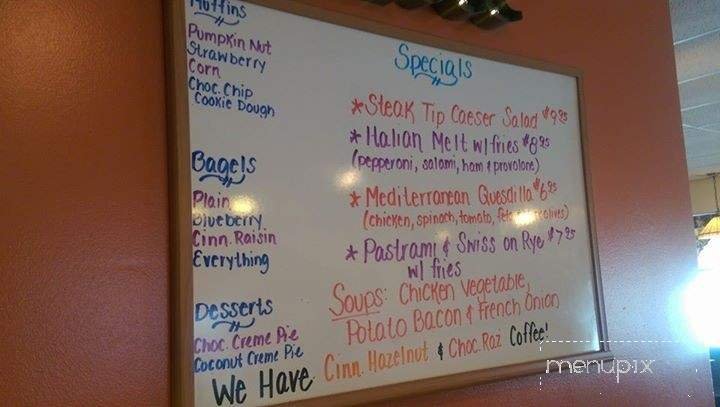 Muffins
Pumpkin Nut
Strawberry
Corn
Choc. Chip
Cookie Dough
Bagels
Plain
Blueberry
Cinn. Raisin
Everything
Desserts
Choc. Creme Pie
Coconut Creme Pie
Specials
* Steak Tip Caeser Salad $9.95
* Italian Melt w/ fries $8.95
(pepperoni, salami, ham & provolone)
* Mediterranean Quesdilla $6.95
(chicken, spinach, tomato, olives)
* Pastrami & Swiss on Rye $7.95
w/ fries
Soups: Chicken Vegetable,
Potato Bacon & French Onion
We Have Cinn. Hazelnut & Choc. Raz Coffee!
menupix